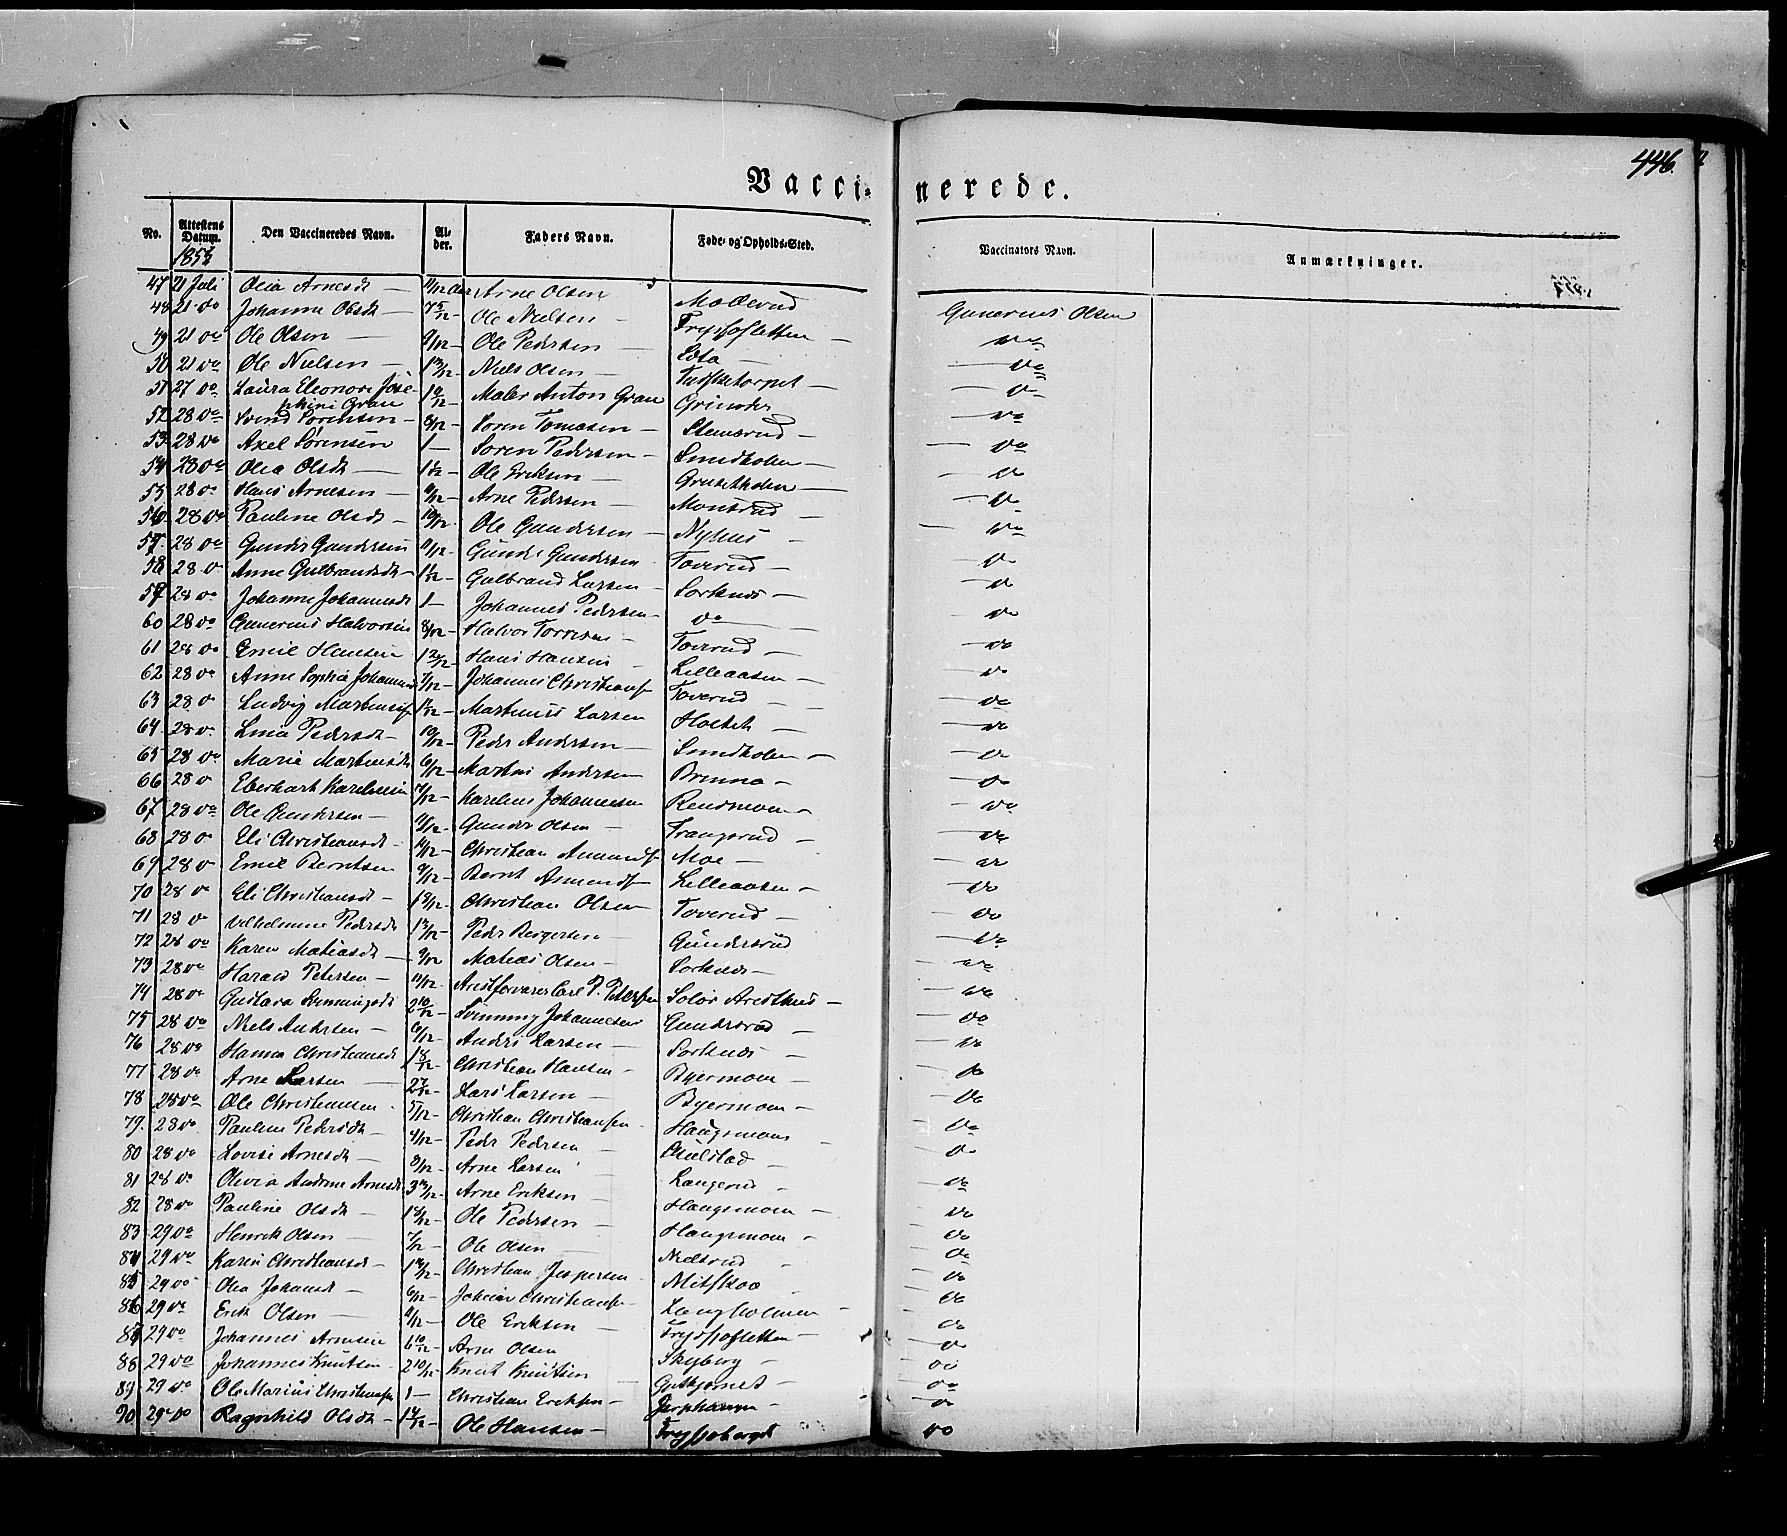 446.
Vacci- nerede.
No. Attestens Datum. Den Vaccineredes Navn. Al- der. Faders Navn. Føde- og Opholds-Sted. Vaccinators Navn. Anmærkninger.
47 21 Juli Olia Arnesdt — 11/12 Aar Arne Olsen Moellerud Gunerius Olsen
48 21 do Johanne Olsdt — 7 5/12 — Ole Nielsen — Frysjosletten — do
49 21 do Ole Olsen — 9/12 — Ole Pedersen — do
50 21 do Ole Nielsen — Niels Olsen — Tudsketorpet — do
51 27 do Laura Eleonore Jose- phine Gran 10/12 — Maler Anton Gran Grinder do
52 28 do Svend Sørensen — 8/12 — Soren Tomasen — Stemsrud — do
53 28 do Axel Sørensen 1 — Soren Pedersen — Smedholen — do
54 28 do Olia Olsdt — Ole Eriksen — Grusetholen — do
55 28 do Hans Arnesen — Arne Pedersen — Monsrud — do
56 28 do Pauline Olsdt — 10/12 — Ole Gundersen — Nyhus — do
57 28 do Gunder Gundersen 11/12 — Gunder Gundersen Toverud — do
58 28 do Anne Gulbrandsdt — Gulbrand Larsen — Sorknes — do
59 28 do Johanne Johannesdt 1 — Johannes Pedersen — do — do
60 28 do Gunerius Halvorsen 8/12 — Halvor Torresen — Toverud — do
61 28 do Emil Hansen Hans Hansen — Lilleaasen — do
62 28 do Anne Sophie Johannesd 7/12 — Johannes Christiansen Toverud — do
63 28 do Ludvig Martinusen Martinus Larsen Holtet — do
64 28 do Lina Pedersdt — 10/12 — Peder Andersen — Smedholen — do
65 28 do Marie Martinsdt 6/12 — Martin Andersen Brenna — do
66 28 do Eberhart Kareliusen 7/12 — Karelius Johannesen Rendmoen — do
67 28 do Ole Gundersen — Gunder Olsen — Trangsrud — do
68 28 do Eli Christiansdt — Christian Amundsen Moe — do
69 28 do Emil Berntsen 9/12 — Bernt Asmundsen Lilleaasen — do
70 28 do Eli Christiansdt — Christian Olsen Toverud — do
71 28 do Vilhelmine Pedersdt Peder Bergersen Gundersrud do
72 28 do Karen Matiasdt — 9/12 Matias Olsen — Sorknes — do
73 28 do Harald Petersen — 11/12 — Arestforvarer Carl P. Petersen Solør Aresthus — do
74 28 do Gustava 2 10/12 — Johannesen Gundersrud — do
75 28 do Niels Andersen — 6/12 — Anders Larsen — Sorknes — do
76 28 do Hanna Christiansdt 1 8/12 — Christian Hansen — Byermoen — do
77 28 do Arne Larsen — Lars Larsen — Byermoen — do
78 28 do Ole Christiansen 5/12 — Christian Christiansen Haugsmoen do
79 28 do Pauline Pedersdt — 4/12 — Peder Pedersen — do
80 28 do Lovise Arnesdt — 8/12 — Arne Larsen Langerud — do
81 28 do Olivia Andrine Arnesdt Arne Eriksen — Haugsmoen — do
82 28 do Pauline Olsdt — Ole Pedersen — Haugsmoen — do
83 29 do Henrik Olsen — 7/12 — Ole Olsen — Nælsrud do
84 29 do Karen Christiansdt — Christian Jespersen Mitskog — do
85 29 do Olia Johansdt — 6/12 — Johan Christiansen Langholmen — do
86 29 do Erik Olsen — 9/12 — Ole Eriksen — Frysjosletten — do
87 29 do Johannes Arnesen 6 10/12 — Arne Olsen Skyberg — do
88 29 do Johannes Knutsen 2 10/12 — Knut Knutsen Gutkjernet — do
89 29 do Ole Marius Christiansen 1 — Christian Eriksen — do
90 29 do Ragnhild Olsdt — Ole Hansen — Frysjoberget do